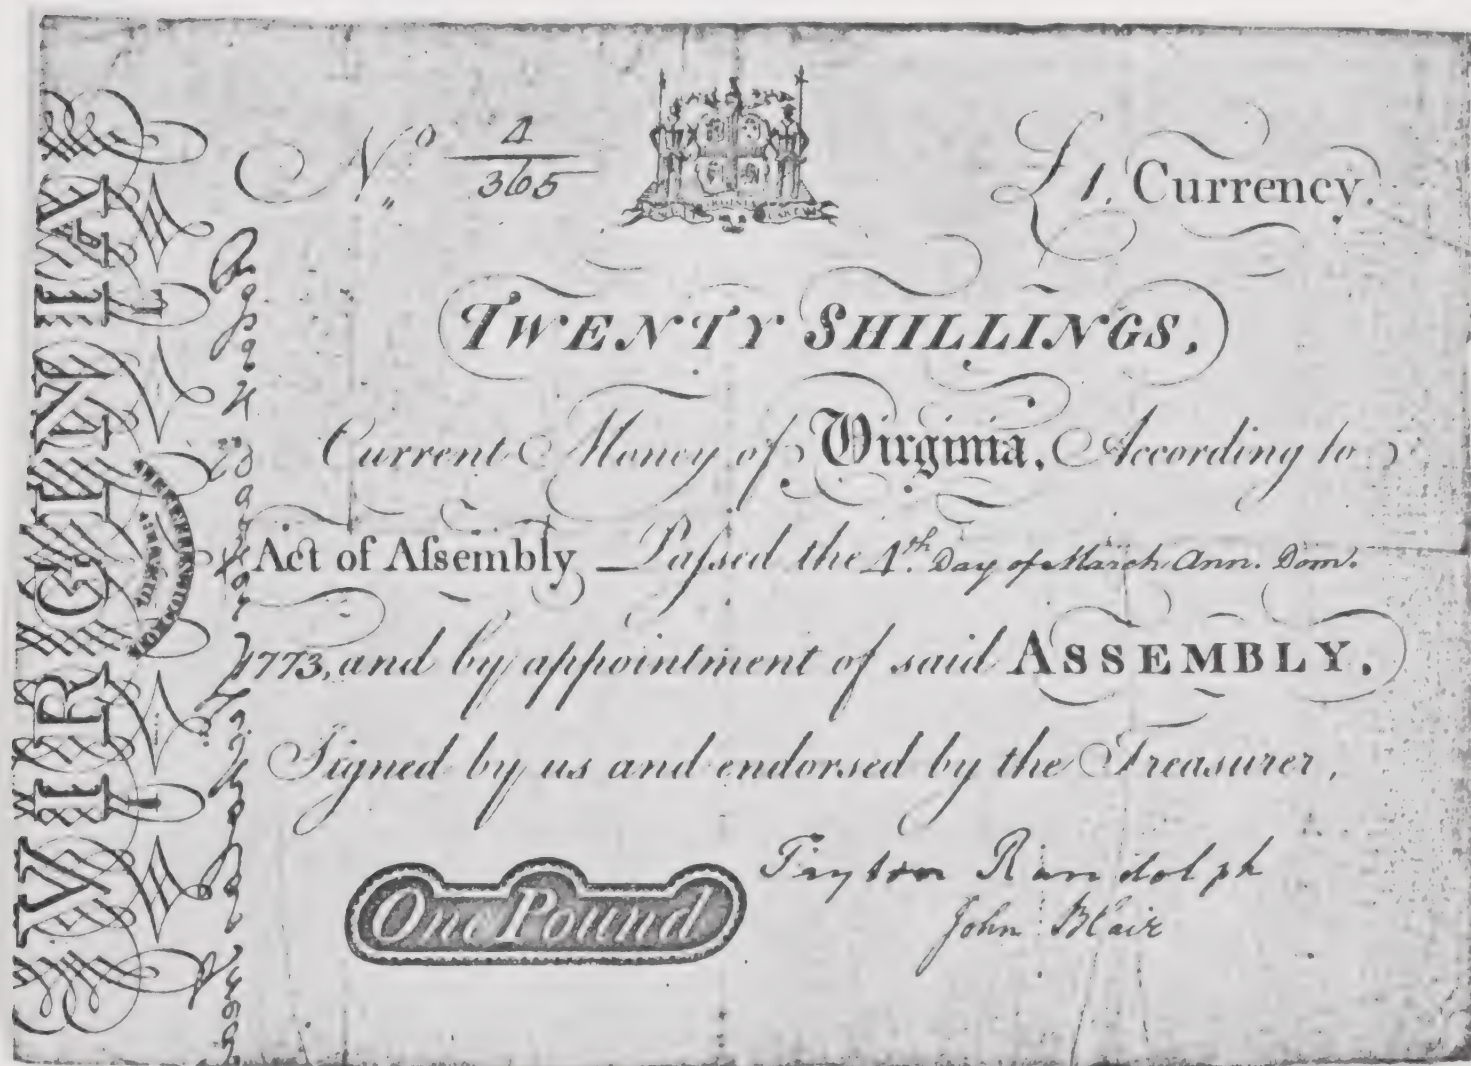 No 4/365
£1. Currency.
TWENTY SHILLINGS,
Current Money of Virginia, According to
Act of Aſsembly Paſsed the 4th. Day of March Ann. Dom.
1773, and by appointment of said ASSEMBLY.
Signed by us and endorsed by the Treasurer,
One Pound
Peyton Randolph
John Blair
VIRGINIA